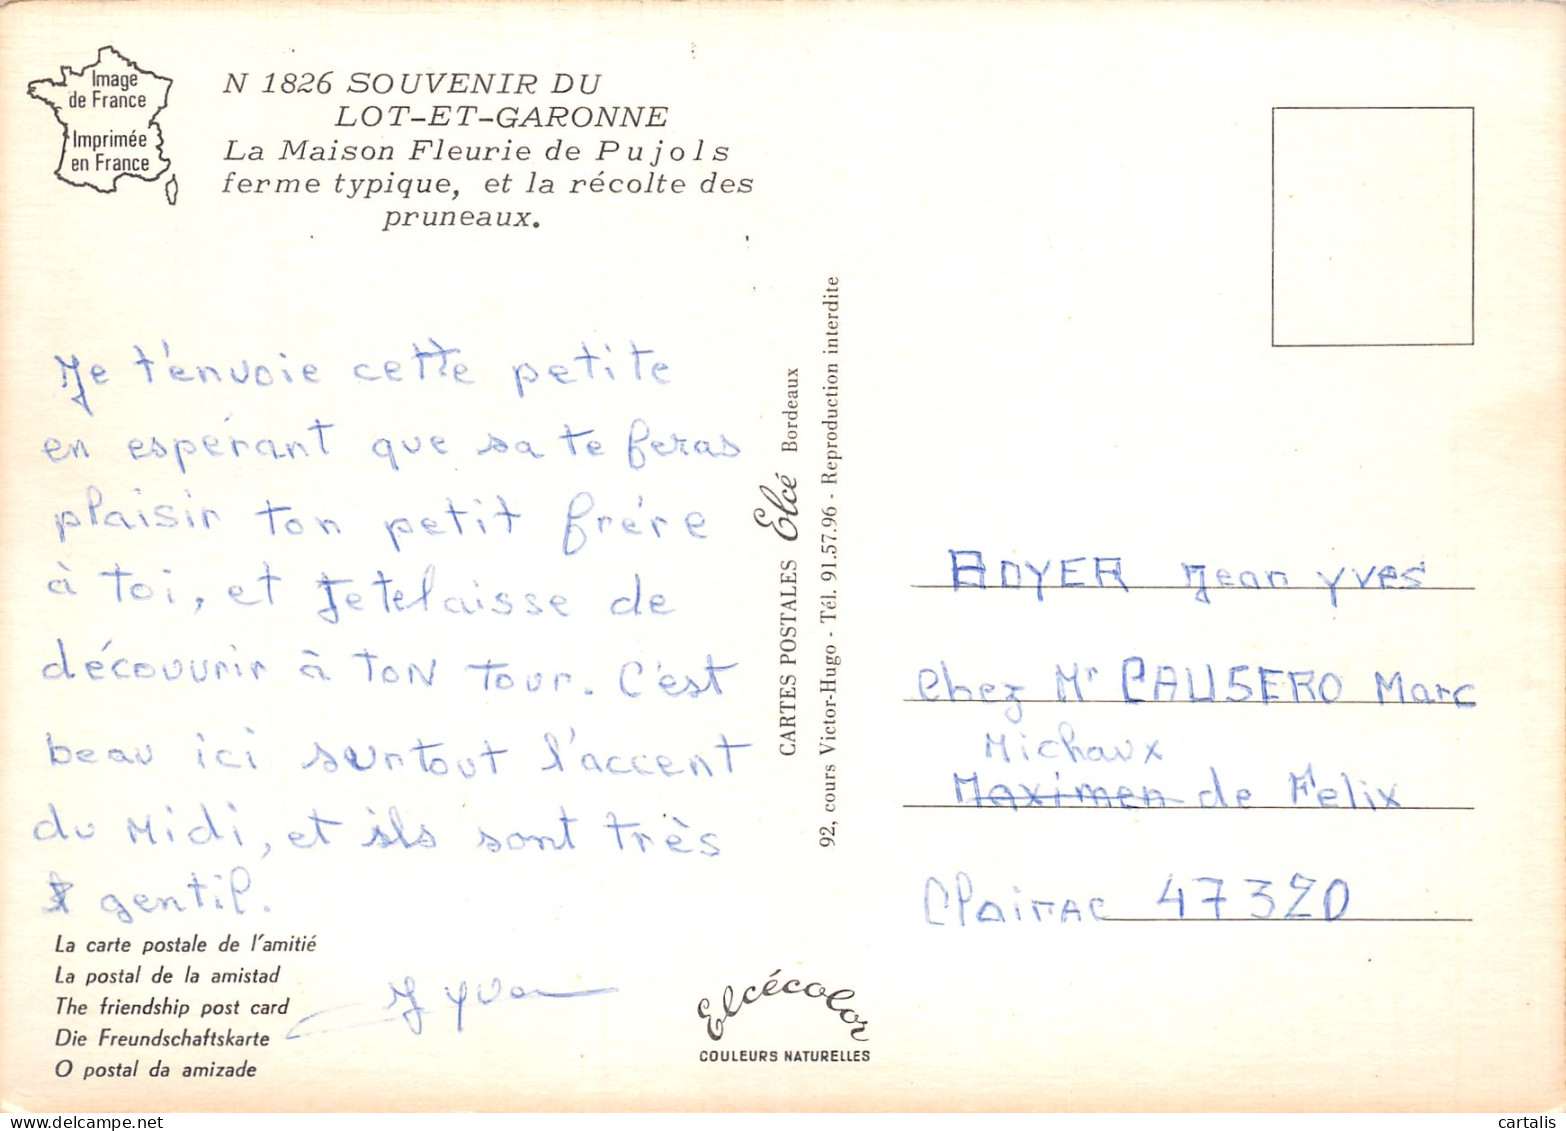 Image
de France
Imprimée
en France
N 1826 SOUVENIR DU
LOT-ET-GARONNE
La Maison Fleurie de Pujols
ferme typique, et la récolte des
pruneaux.
Je t'envoie cette petite
en espérant que sa te feras
plaisir ton petit frére
à toi, et Je te laisse de
découvrir à TON TOUR. C'est
beau ici surtout l'accent
du Midi, et ils sont très
gentil.
La carte postale de l'amitié
La postal de la amistad
The friendship post card
Die Freundschaftskarte
O postal da amizade
CARTES POSTALES Elcé Bordeaux
92, cours Victor-Hugo - Tél. 91.57.96 - Reproduction interdite
Elcécolor
COULEURS NATURELLES
BOYER Jean Yves
chez Mr CAUSERO Marc
Michaux
Maximen de Félix
Clairac 47320
cartalis